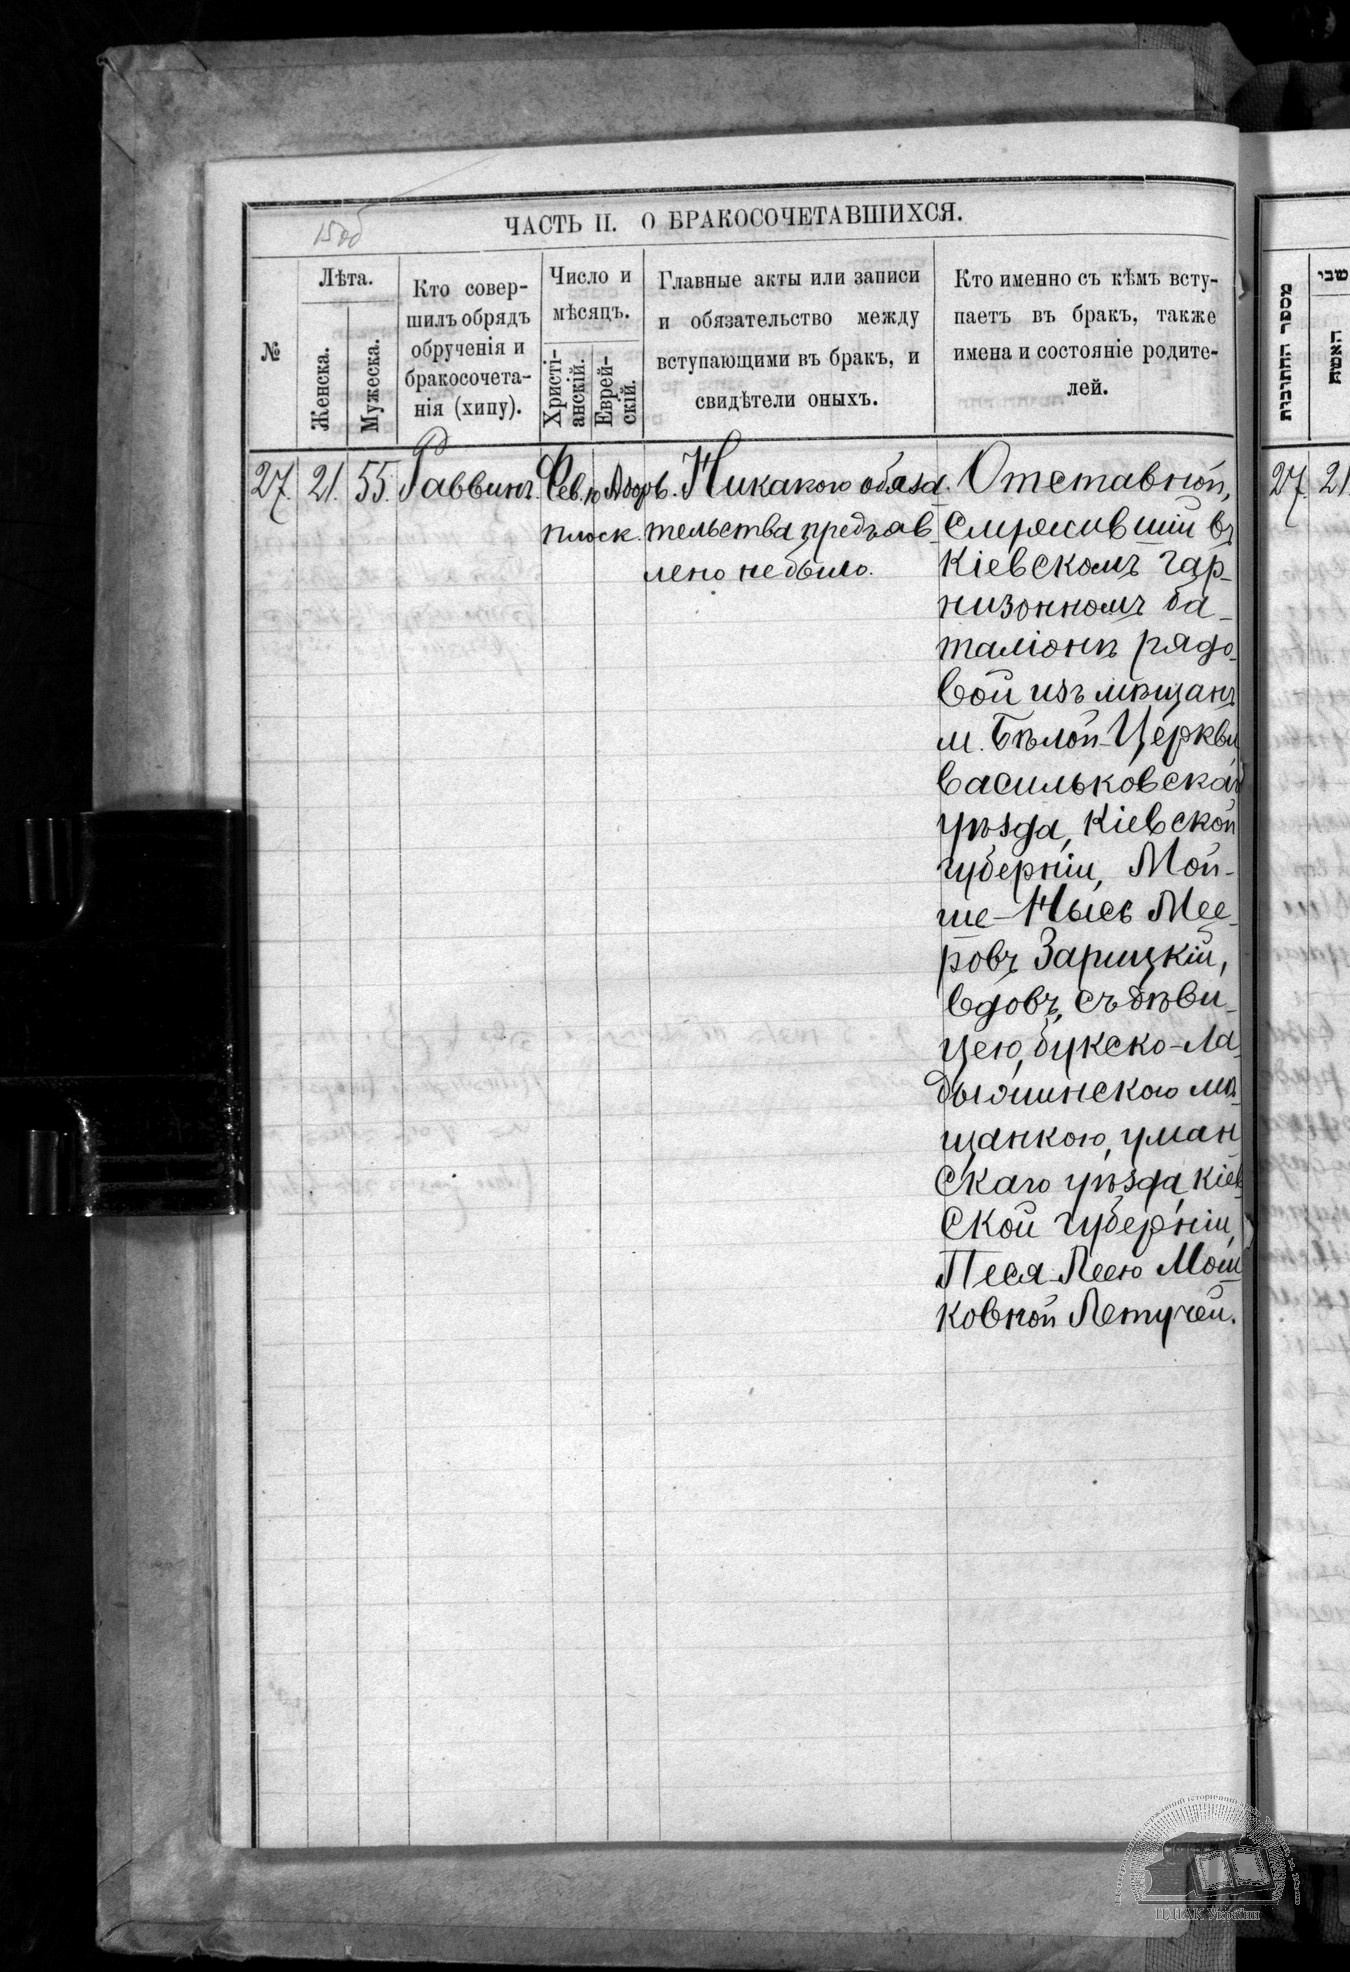 ЧАСТЬ II. О БРАКОСОЧЕТАВШИХСЯ.
№
Лѣта.
Женска.
Мужеска.
Кто совер-
шилъ обрядъ
обрученія и
бракосочета-
нія (хипу).
Число и
мѣсяцъ.
Христі-
анскій.
Еврей-
скій.
Главные акты или записи
и обязательство между
вступающими въ бракъ, и
свидѣтели оныхъ.
Кто именно съ кѣмъ всту-
паетъ въ бракъ, также
имена и состояніе родите-
лей.
27. 21. 55. Раввинъ.
Никакого обяза
тельства предъяв
лено не было.
Отставной,
служившій въ
Кіевскомъ гар-
низонномъ ба-
таліонѣ рядо-
вой изъ мѣщанъ
м. Бѣлой-Церкви
Васильковскаго
уѣзда, Кіевской
губерніи, Мой-
ше-Нысь Мее-
ровъ Зарицкій,
вдовъ, съ дѣви-
цею, букско-ла-
дыжинскою мѣ-
щанкою, уман
скаго уѣзда, кіев
ской губерніи,
Песя-Леею Мош
ковной Летучей.
מספר החתונות
האשה
27. 21.
ЦДІАК України